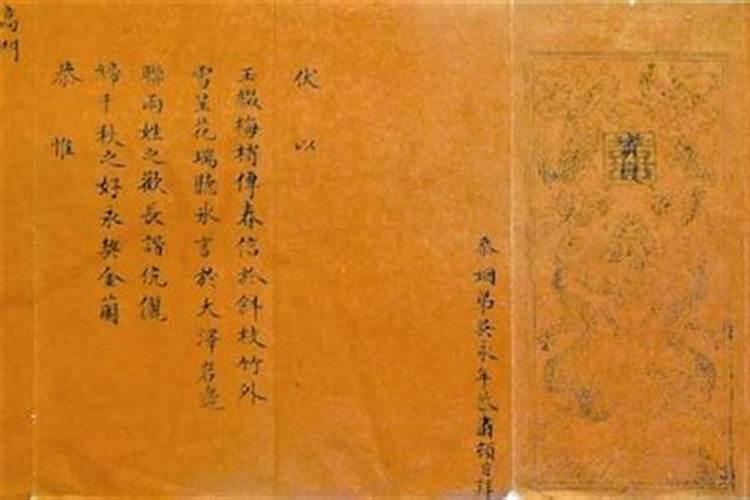 忝姻弟吳永年恭肅頓首拜
伏以
玉綴梅梢傳春信於斜枝竹外
雪呈花瑞聽氷言於大澤岩邊
聯兩姓之歡長諧伉儷
締千秋之好永契金蘭
恭惟
高門